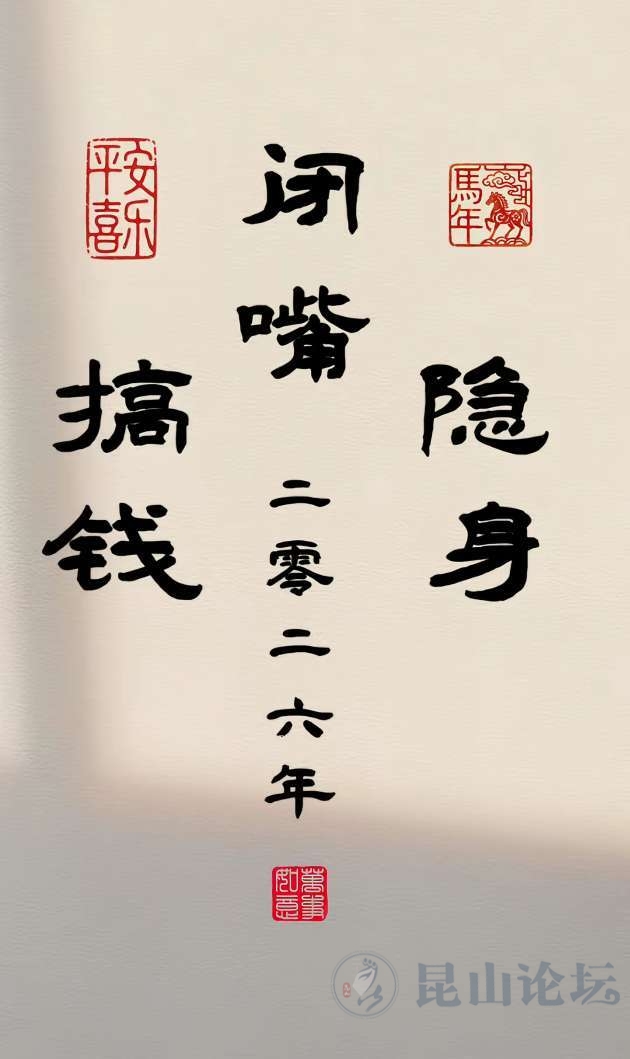 隐身
闭嘴
搞钱
二零二六年
馬年
平安喜乐
萬事如意
昆山论坛